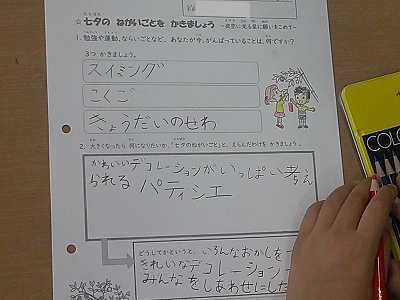 ☆七夕の ねがいごとを かきましょう
~夜空に光る星に願いをこめて~
1. 勉強や運動、ならいごとなど、あなたが今、がんばっていることは、何ですか?
3つ かきましょう。
スイミング
こくご
きょうだいのせわ
2. 大きくなったら 何になりたいか、「七夕のねがいごと」と、えらんだわけを かきましょう。
かわいいデコレーションがいっぱい考え
られる パティシエ
どうしてかというと、いろんなおかしを
きれいなデコレーション
みんなをしあわせにした
COLO